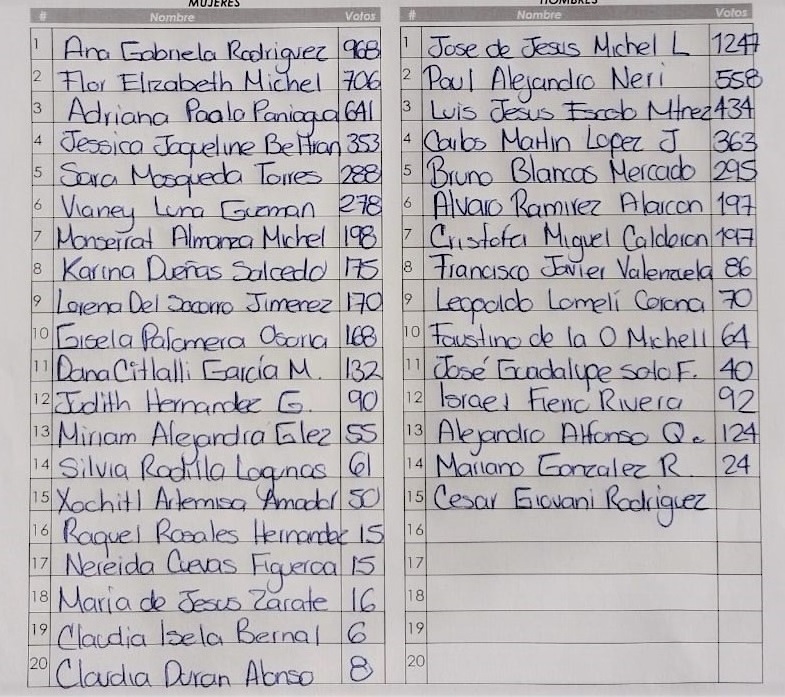 MUJERES
# Nombre Votos
1 Ana Gabriela Rodriguez 968
2 Flor Elizabeth Michel 706
3 Adriana Paola Paniagua 641
4 Jessica Jaqueline Beltran 353
5 Sara Mosqueda Torres 288
6 Vianey Luna Guzman 278
7 Monserrat Almanza Michel 198
8 Karina Dueñas Salcedo 175
9 Lorena Del Socorro Jimenez 170
10 Gisela Palomera Osoria 168
11 Dana Citlalli García M. 132
12 Judith Hernandez G. 90
13 Miriam Alejandra Glez 55
14 Silvia Radilla Lagunas 61
15 Xochitl Artemisa Amador 50
16 Raquel Rosales Hernandez 15
17 Nereida Cuevas Figueroa 15
18 Maria de Jesus Zarate 16
19 Claudia Isela Bernal 6
20 Claudia Duran Alonso 8
HOMBRES
# Nombre Votos
1 Jose de Jesus Michel L 1247
2 Paul Alejandro Neri 558
3 Luis Jesus Escob Mtnez 434
4 Carlos Martin Lopez J 363
5 Bruno Blancas Mercado 295
6 Alvaro Ramirez Alarcon 197
7 Cristofer Miguel Calderon 197
8 Francisco Javier Valenzuela 86
9 Leopoldo Lomelí Corona 70
10 Faustino de la O Michell 64
11 José Guadalupe Soto F. 40
12 Israel Rivera 92
13 Alejandro Alfonso Q. 124
14 Mariano Gonzalez R 24
15 Cesar Giovani Rodriguez
16
17
18
19
20